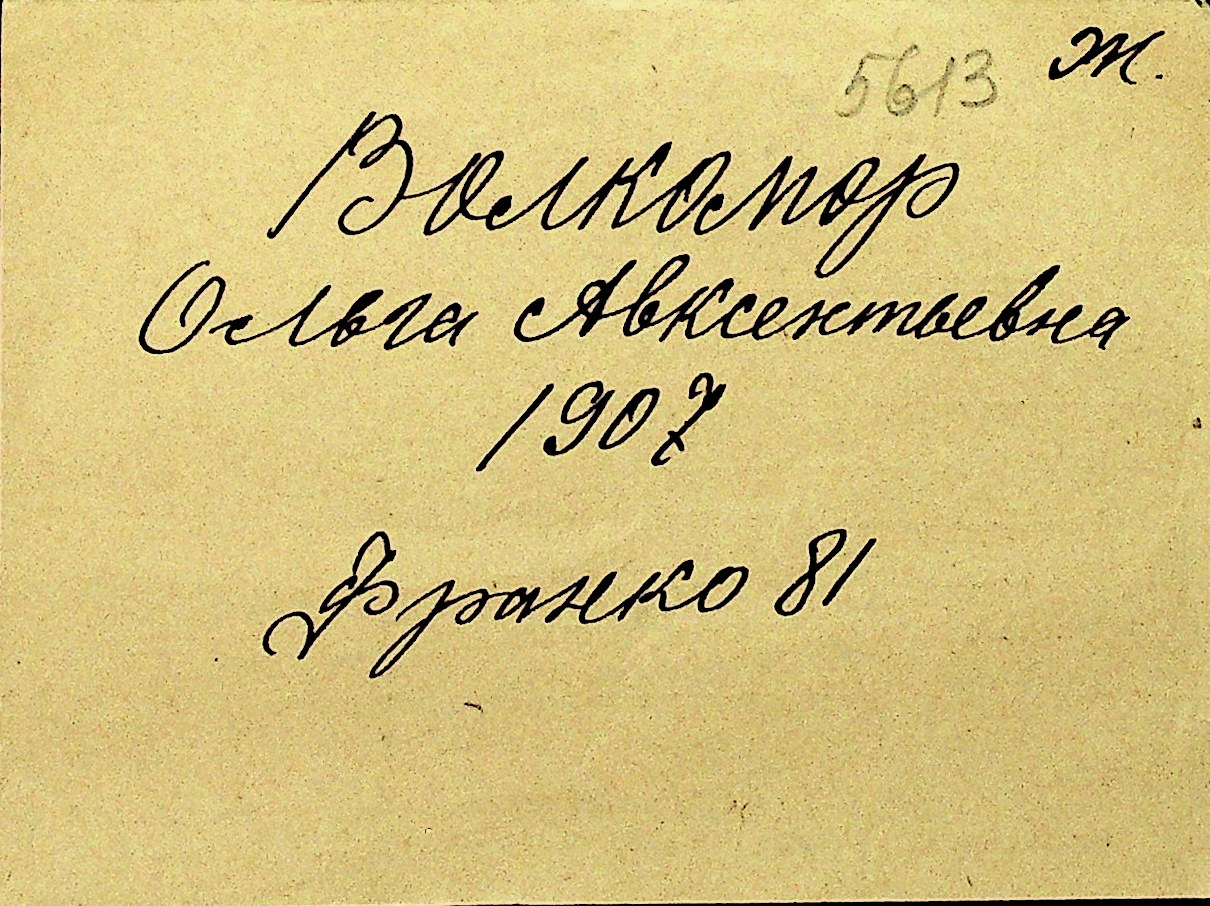 5613 Ж.
Волкомор
Ольга Авксентьевна
1907
Франко 81